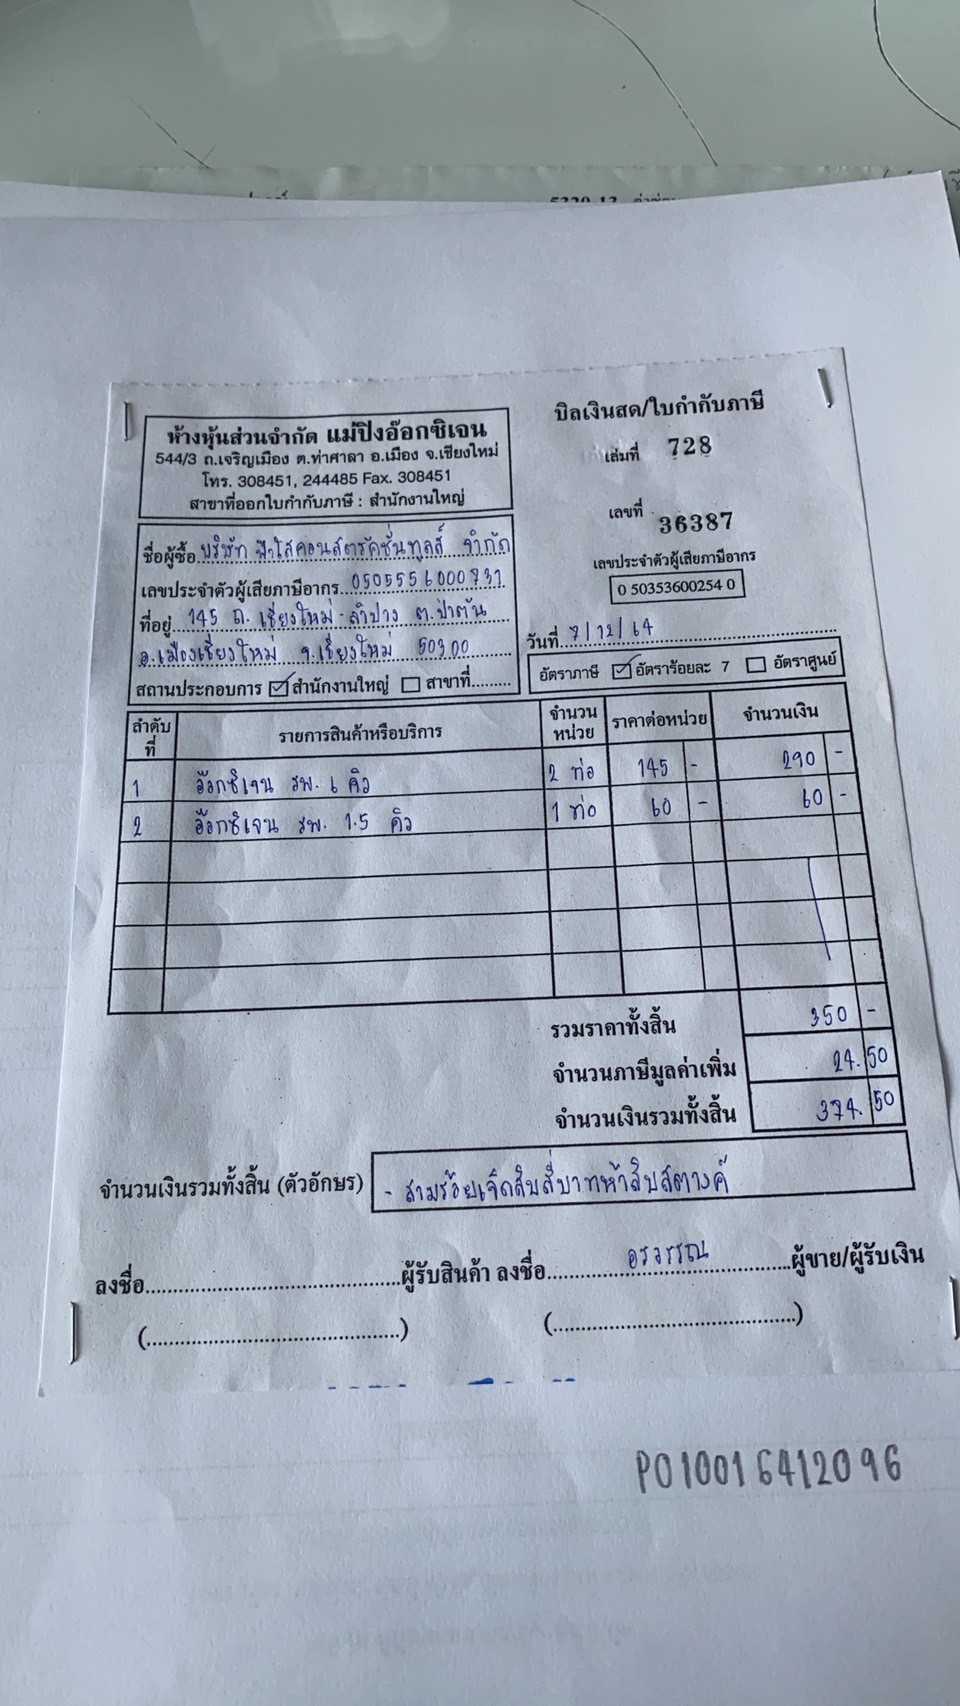 5320-13
บิลเงินสด/ใบกำกับภาษี
ห้างหุ้นส่วนจำกัด แม่ปิงอ๊อกซิเจน
544/3 ถ.เจริญเมือง ต.ท่าศาลา อ.เมือง จ.เชียงใหม่
โทร. 308451, 244485 Fax. 308451
สาขาที่ออกใบกำกับภาษี : สำนักงานใหญ่
เล่มที่ 728
เลขที่ 36387
เลขประจำตัวผู้เสียภาษีอากร
0 50353600254 0
ชื่อผู้ซื้อ บริษัท ฟาโสคอนสตรัคชั่นทูลส์ จำกัด
เลขประจำตัวผู้เสียภาษีอากร 0505556000731
ที่อยู่ 145 ถ. เชียงใหม่-ลำปาง ต.ป่าตัน
อ.เมืองเชียงใหม่ จ.เชียงใหม่ 50300
สถานประกอบการ ☑ สำนักงานใหญ่ ☐ สาขาที่.........
วันที่ 7/12/64
อัตราภาษี ☑ อัตราร้อยละ 7 ☐ อัตราศูนย์
ลำดับที่ รายการสินค้าหรือบริการ จำนวนหน่วย ราคาต่อหน่วย จำนวนเงิน
1 อ๊อกซิเจน รพ. 6 คิว 2 ท่อ 145 - 290 -
2 อ๊อกซิเจน รพ. 1.5 คิว 1 ท่อ 60 - 60 -
รวมราคาทั้งสิ้น 350 -
จำนวนภาษีมูลค่าเพิ่ม 24.50
จำนวนเงินรวมทั้งสิ้น 374.50
จำนวนเงินรวมทั้งสิ้น (ตัวอักษร) - สามร้อยเจ็ดสิบสี่บาทห้าสิบสตางค์
ลงชื่อ..........ผู้รับสินค้า ลงชื่อ อรวรรณ ผู้ขาย/ผู้รับเงิน
(..........) (..........)
PO10016412096